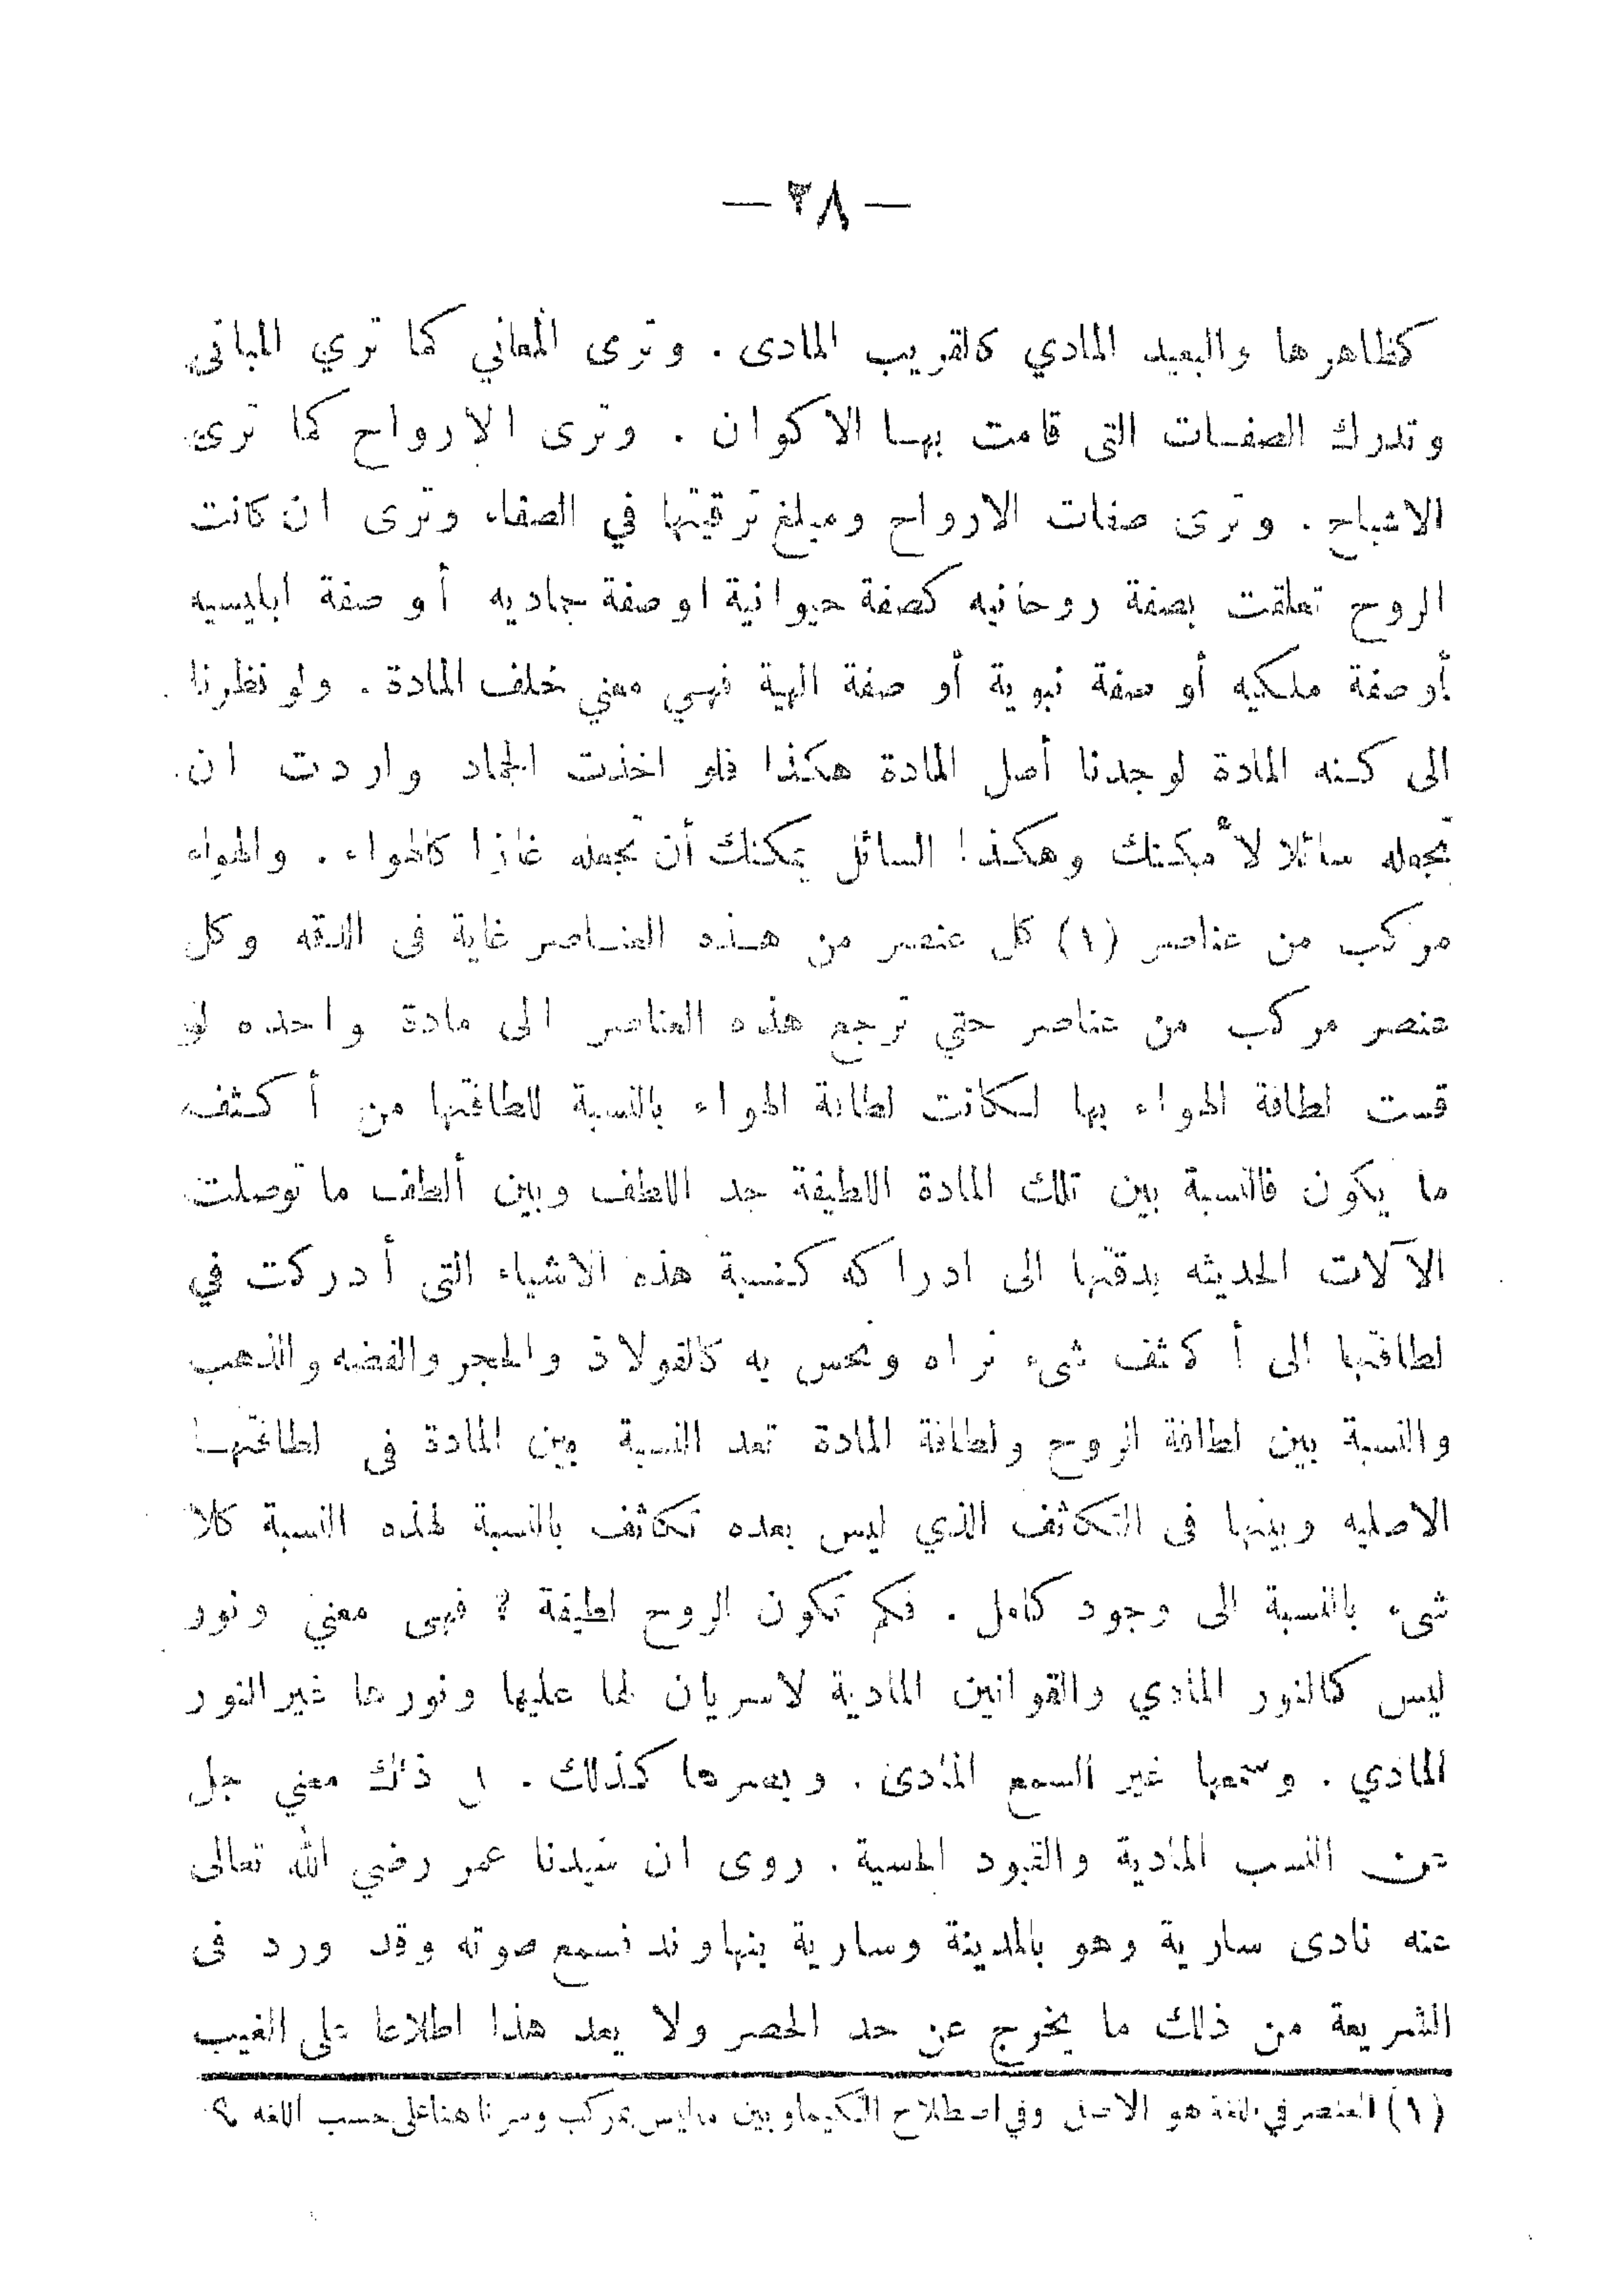 — ٣٨ —
كظاهرها والبعيد المادي كالقريب المادى . وترى المعاني كما تري المبانى
وتدرك الصفات التى قامت بها الاكوان . وترى الارواح كما ترى
الاشباح . وترى صفات الارواح ومبلغ ترقيتها في الصفاء وترى ان كانت
الروح تعلقت بصفة روحانيه كصفة حيوانية اوصفة جماديه أو صفة ابليسيه
أوصفة ملكيه أو صفة نبوية أو صفة الهية فهي معني خلف المادة . ولو نظرنا
الى كنه المادة لوجدنا أصل المادة هكذا فلو اخذت الجماد واردت ان
تجعله سائلا لأمكنك وهكذا السائل يمكنك أن تجعله غازا كالهواء . والهواء
مركب من عناصر (١) كل عنصر من هذه العناصر غاية فى الدقه وكل
عنصر مركب من عناصر حتي ترجع هذه العناصر الى مادة واحده لو
قست لطافة الهواء بها لكانت لطافة الهواء بالنسبة للطافتها من أكثف
ما يكون فالنسبة بين تلك المادة اللطيفة جد اللطف وبين ألطف ما توصلت
الآلات الحديثه بدقتها الى ادراكه كنسبة هذه الاشياء التى أدركت في
لطافتها الى أكثف شىء نراه ونحس به كالفولاذ والحجر والفضه والذهب
والنسبة بين لطافة الروح ولطافة المادة تعد النسبة بين المادة فى لطافتها
الاصليه وبينها فى التكاثف الذي ليس بعده تكاثف بالنسبة لهذه النسبة كلا
شىء بالنسبة الى وجود كامل . فكم تكون الروح لطيفة ؟ فهى معني ونور
ليس كالنور المادي والقوانين المادية لاسريان لها عليها ونورها غير النور
المادي . وسمعها غير السمع المادى . وبصرها كذلك . ذلك معني جل
عن النسب المادية والقيود الحسية . روى ان سيدنا عمر رضي الله تعالى
عنه نادى سارية وهو بالمدينة وسارية بنهاوند فسمع صوته وقد ورد فى
الشريعة من ذلك ما يخرج عن حد الحصر ولا يعد هذا اطلاعا على الغيب
(١) العنصر في اللغة هو الاصل وفي اصطلاح الكيماويين ما ليس بمركب وسرنا هنا على حسب اللغه